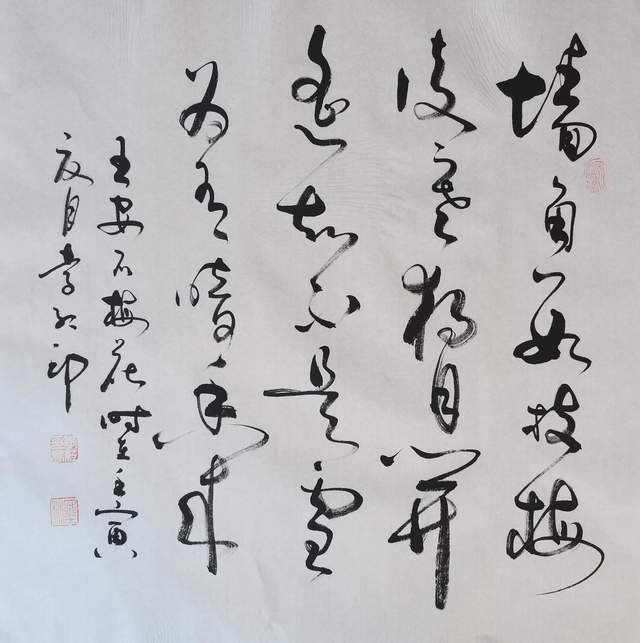 墙角数枝梅
凌寒独自开
遥知不是雪
为有暗香来
王安石梅花时在壬寅
夏月